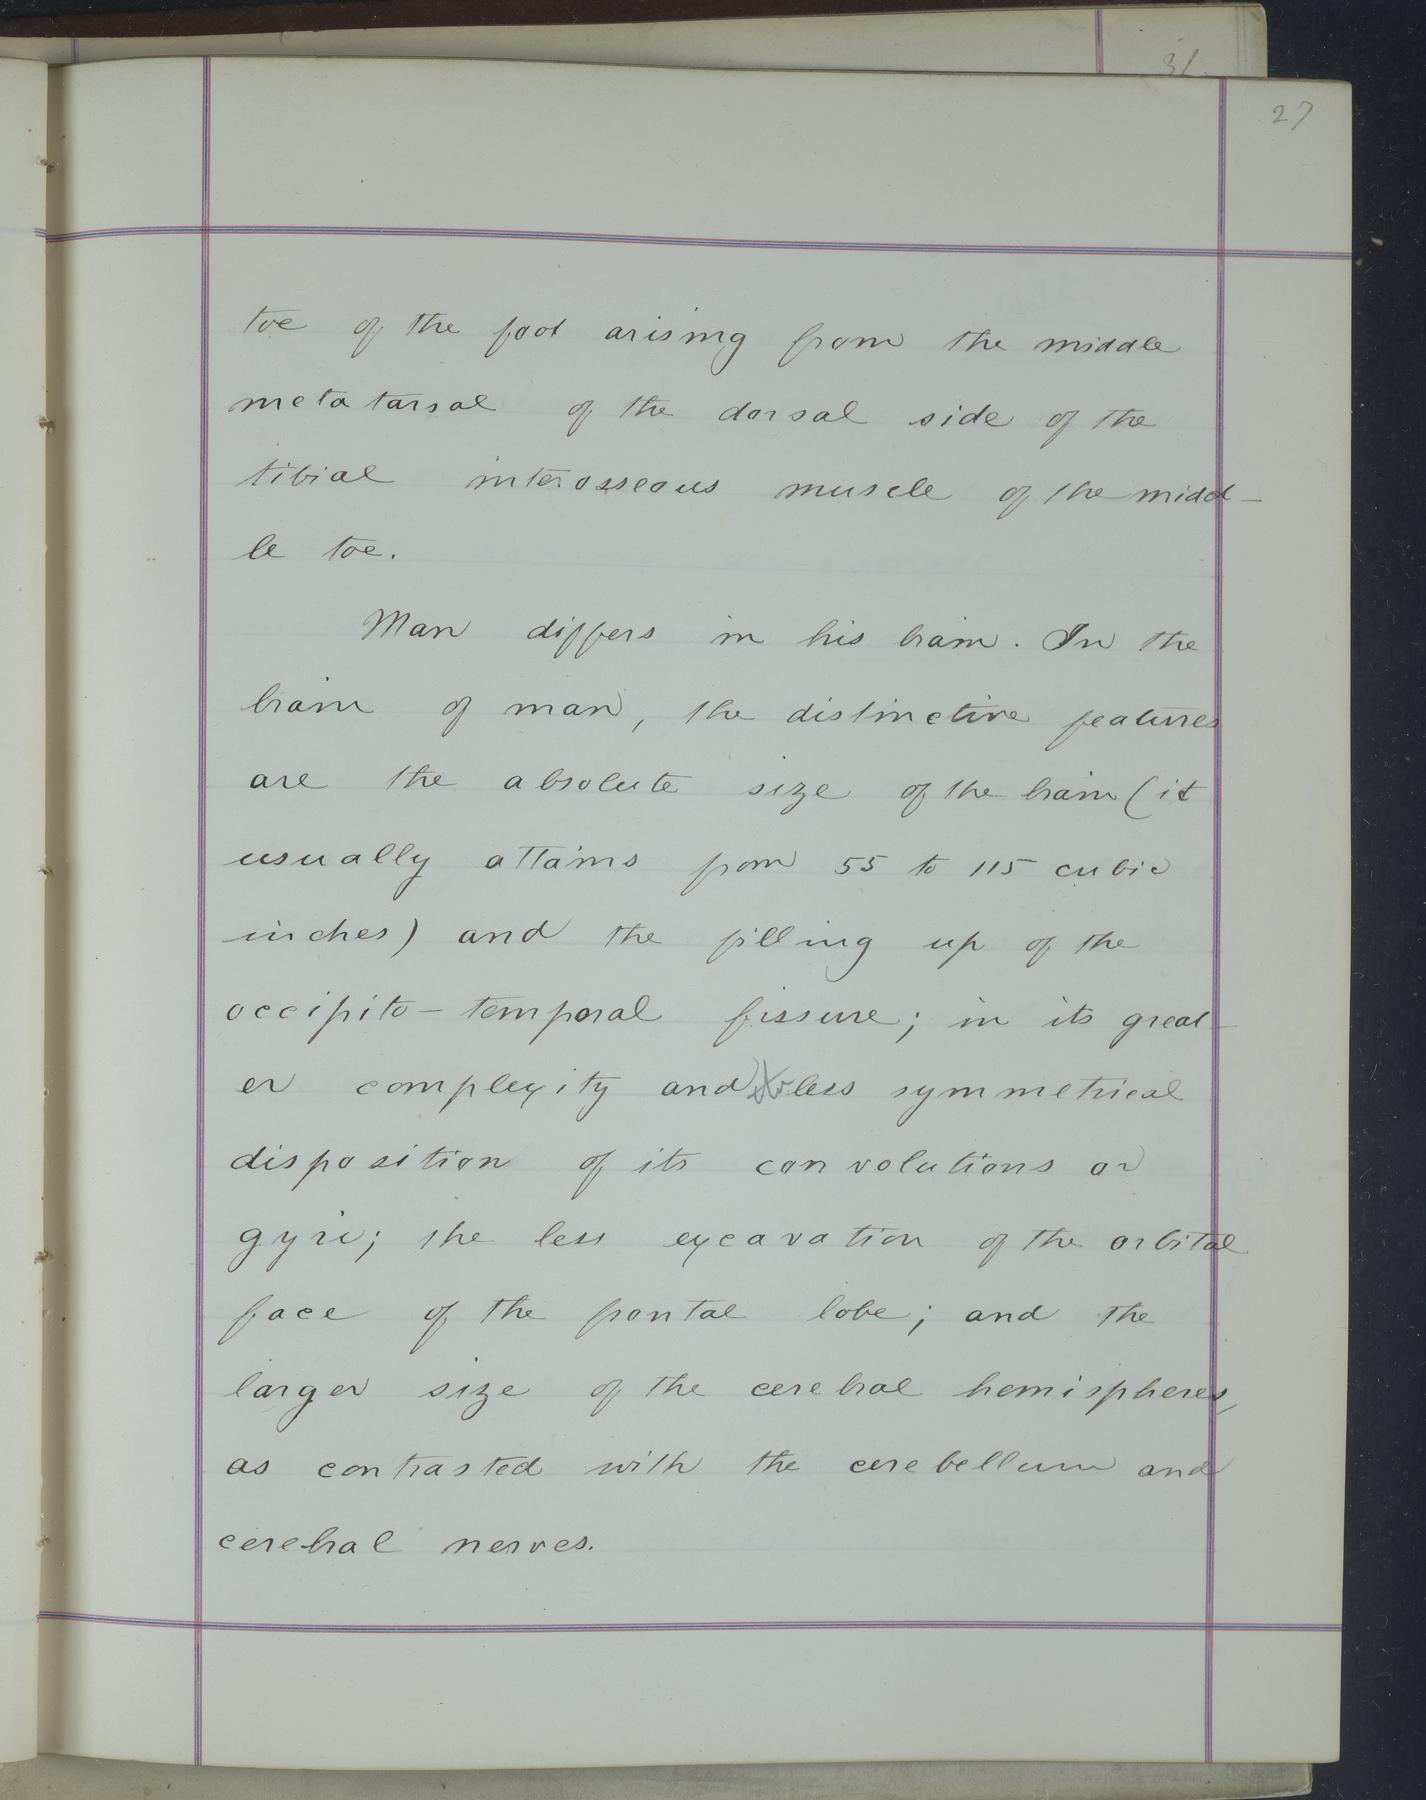 31
27
toe of the foot arising from the middle
metatarsal of the dorsal side of the
tibial interosseous muscle of the midd-
le toe.
Man differs in his brain. In the
brain of man, the distinctive features
are the absolute size of the brain (it
usually attains from 55 to 115 cubic
inches) and the filling up of the
occipito-temporal fissure; in its great-
er complexity and less symmetrical
disposition of its convolutions or
gyri; the less excavation of the orbital
face of the frontal lobe; and the
larger size of the cerebral hemispheres,
as contrasted with the cerebellum and
cerebral nerves.